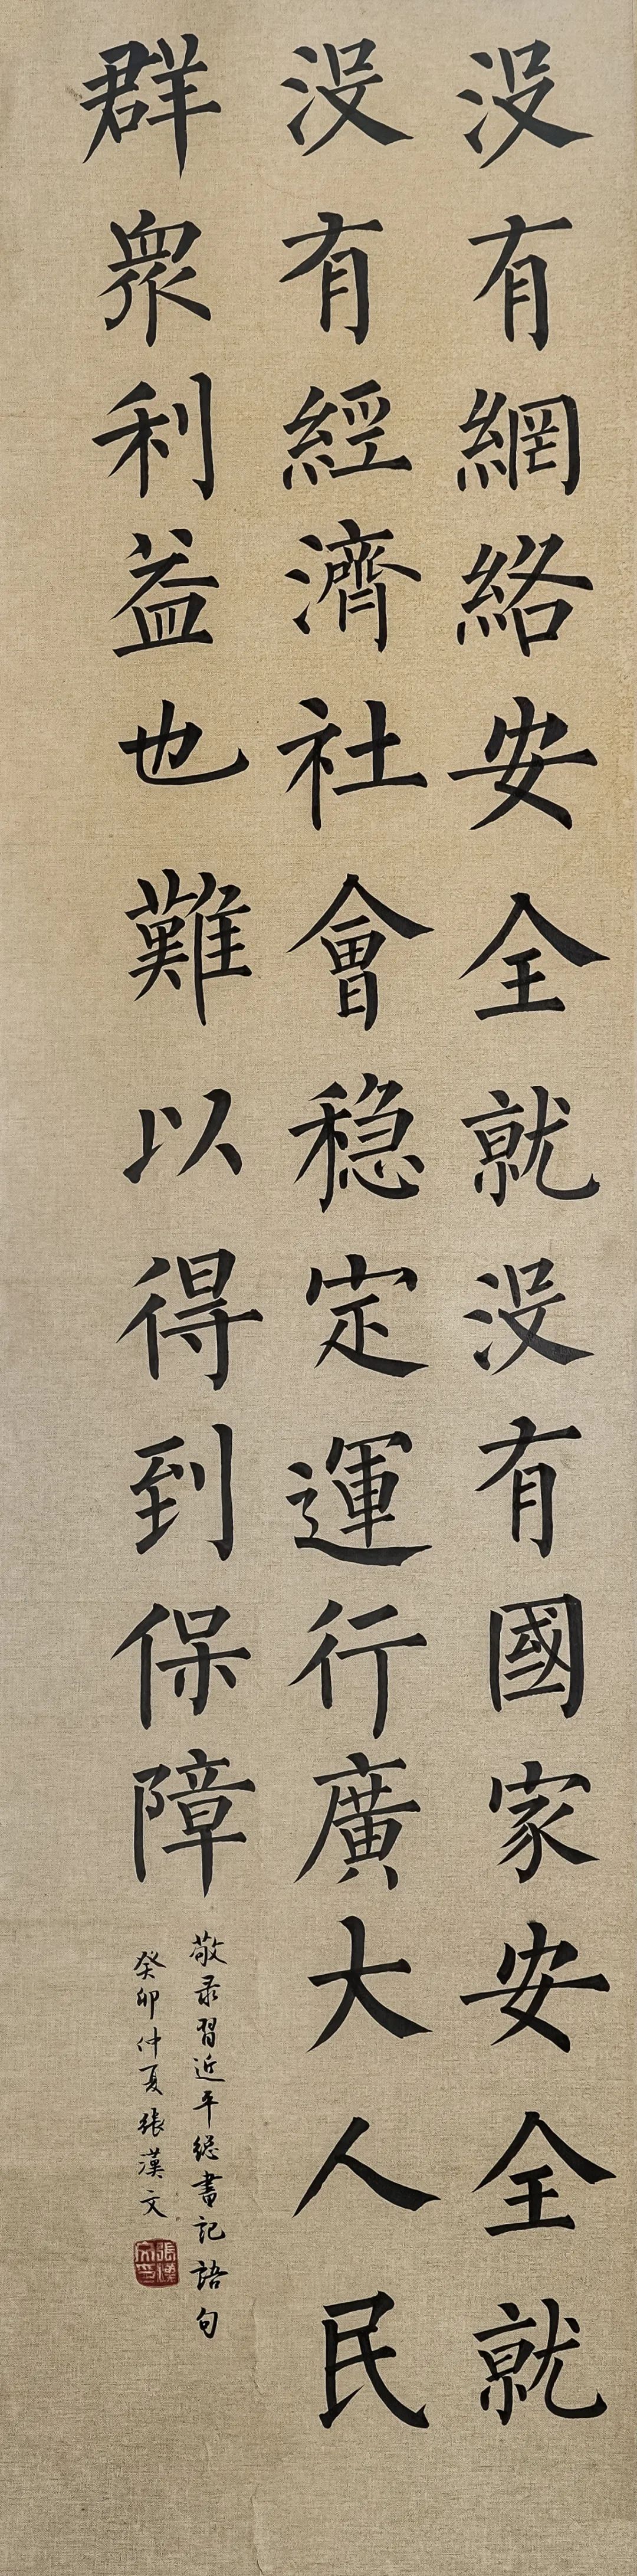 没有網絡安全就没有國家安全就
没有經濟社會穏定運行廣大人民
群衆利益也難以得到保障
敬录習近平総書記語句
癸卯仲夏張漢文
張漢文印